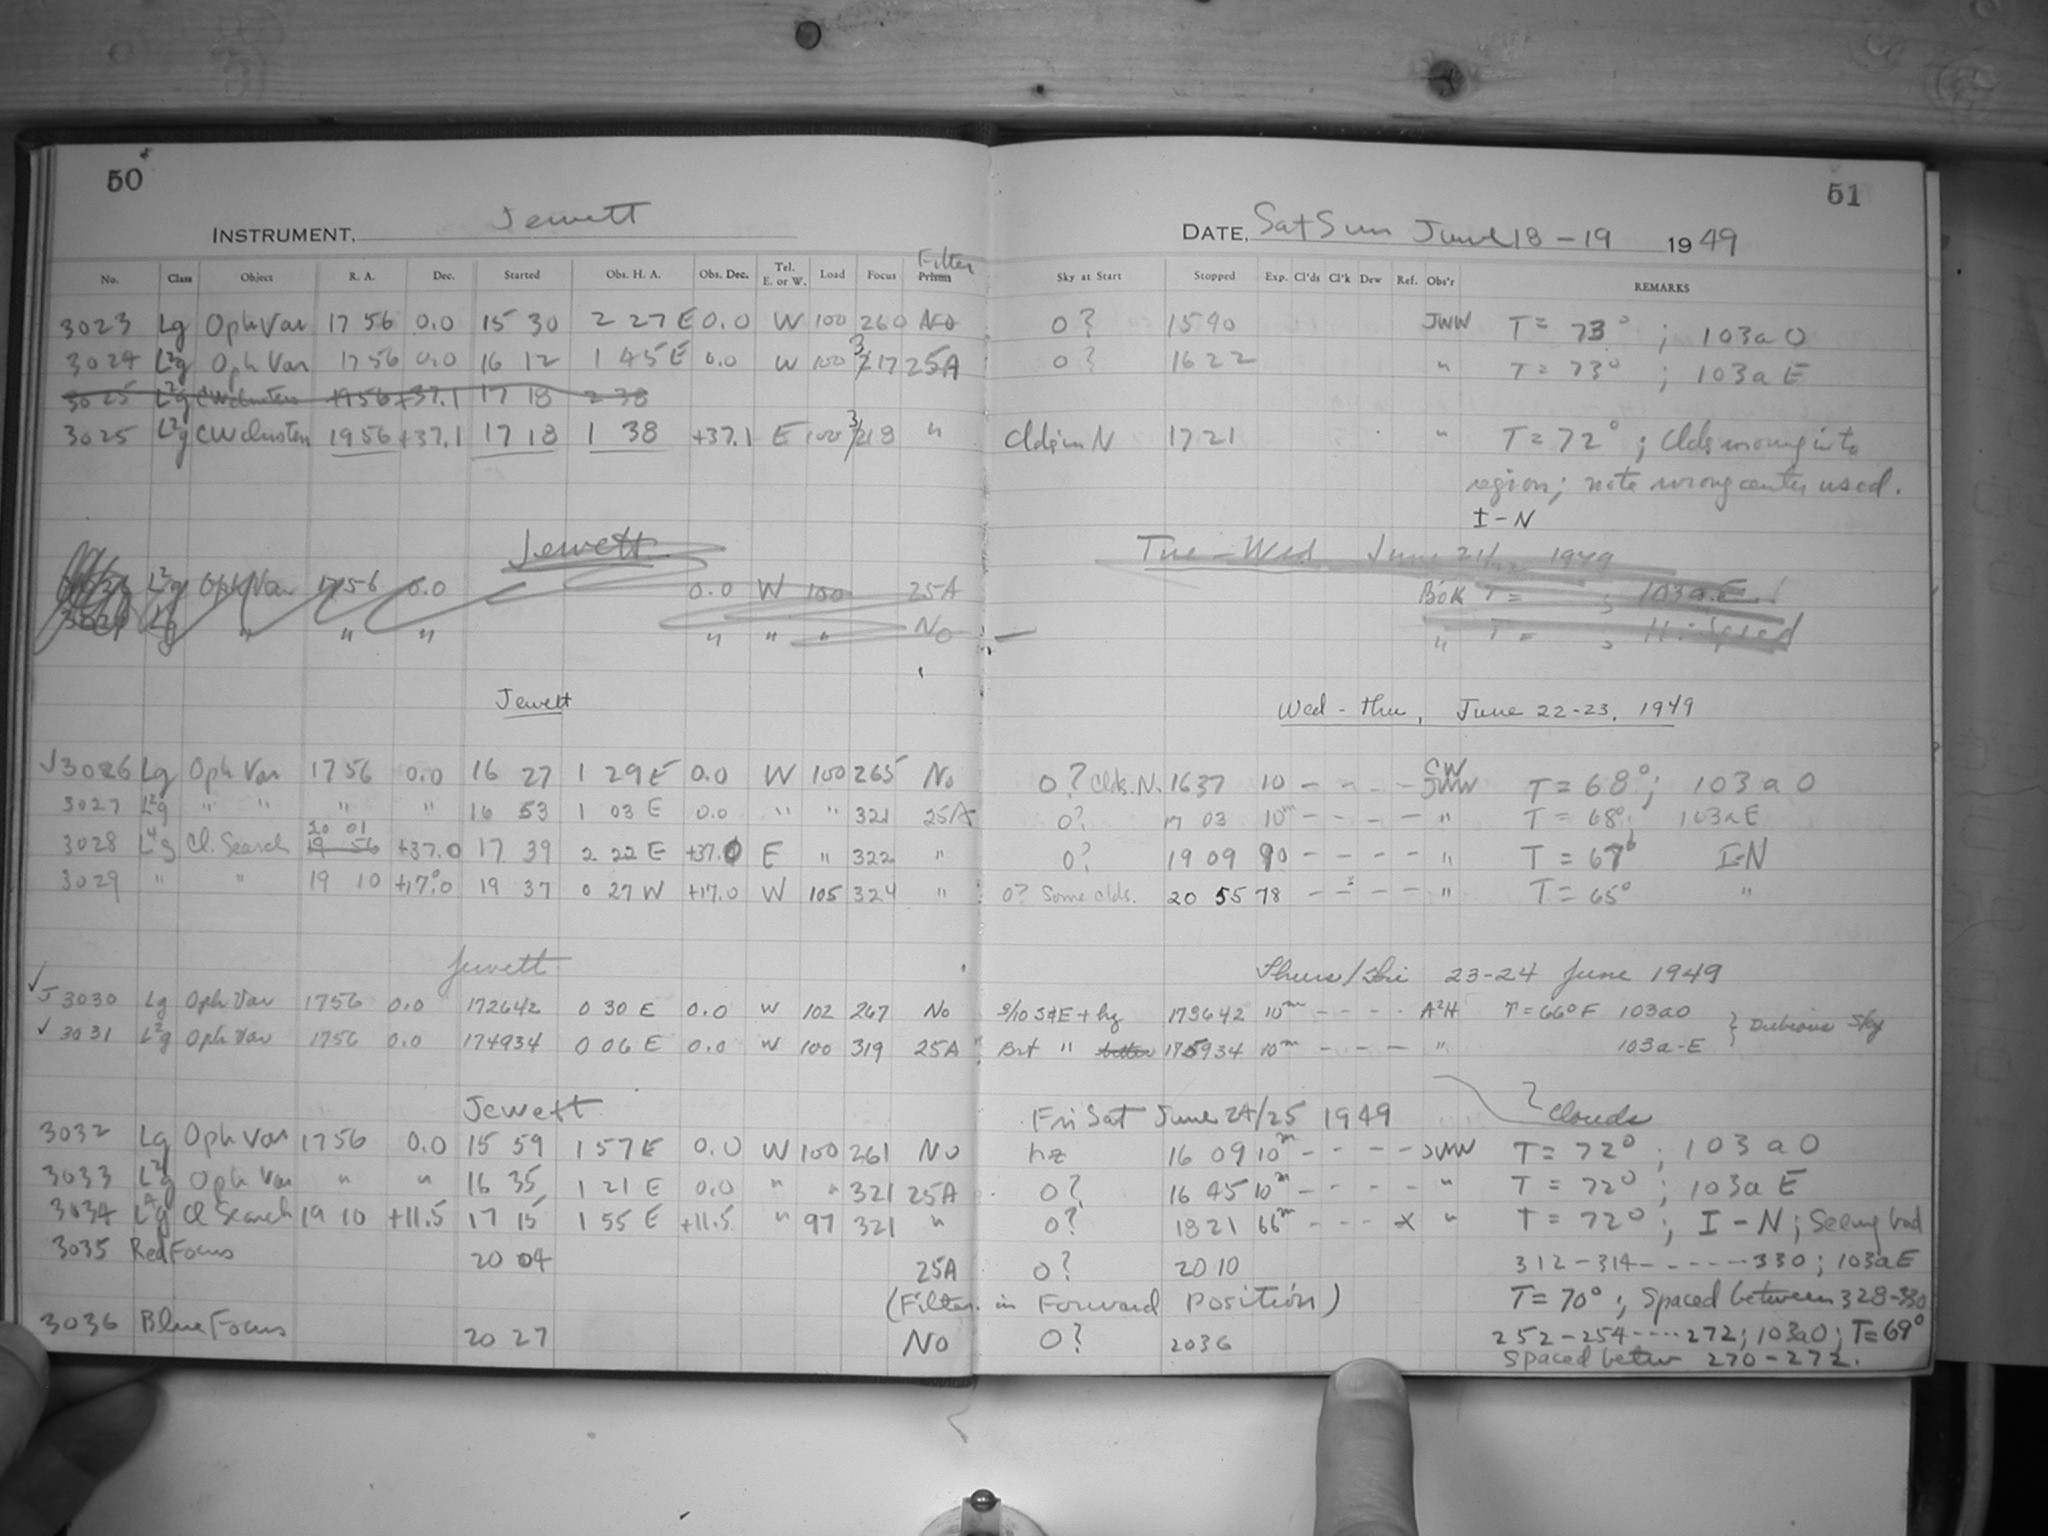 50
51
INSTRUMENT, Jewett DATE, Sat Sun June 18-19 1949
Filter
No. Class Object R. A. Dec. Started Obs. H. A. Obs. Dec. Tel. E. or W. Load Focus Prism Sky at Start Stopped Exp. Cl'ds Cl'k Dew Ref. Obs'r REMARKS
3023 Lg Oph Var 17 56 0.0 15 30 2 27 E 0.0 W 100 260 No 0? 1540 JWW T = 73° ; 103a O
3024 L²g Oph Var 17 56 0.0 16 12 1 45 E 0.0 W 100 317 25A 0? 1622 " T = 73° ; 103a E
3025 L²g CW clusters 1956 +37.1 17 18 2 38
3025 L²g CW clusters 1956 +37.1 17 18 1 38 +37.1 E 100 318 " Clds in N 1721 " T = 72° ; Clds moving into
region; note wrong center used.
I-N
Jewett Tue - Wed June 21/22 1949
L²g Oph Var 1756 0.0 0.0 W 100 25A Bok T = ; 103a E
Lg " " " " " " No " T = ;
Jewett Wed - Thu, June 22-23, 1949
√3026 Lg Oph Var 17 56 0.0 16 27 1 29 E 0.0 W 100 265 No 0? Clds. N. 1637 10 - - - - CW JWW T = 68°; 103 a O
3027 L²g " " " " 16 53 1 03 E 0.0 " " 321 25A 0? 17 03 10ᵐ - - - - " T = 68°; 103a E
20 01
3028 L⁴g Cl. Search 19 56 +37.0 17 39 2 22 E +37.0 E " 322 " 0? 19 09 90 - - - - " T = 67° I-N
3029 " " 19 10 +17.0 19 37 0 27 W +17.0 W 105 324 " 0? Some clds. 20 55 78 - - - - " T = 65° "
Jewett Thurs/Fri 23-24 June 1949
√ 3030 Lg Oph Var 1756 0.0 172642 0 30 E 0.0 W 102 267 No S&E + hz 173642 10ᵐ - - - - A²H T = 66°F 103aO } Dubious Sky
√ 3031 L²g Oph Var 1756 0.0 174934 0 06 E 0.0 W 100 319 25A " better 175934 10ᵐ - - - " 103a-E
Jewett Fri Sat June 24/25 1949 ? clouds
3032 Lg Oph Var 1756 0.0 15 59 1 57 E 0.0 W 100 261 No hz 16 09 10ᵐ - - - - JWW T = 72° ; 103 a O
3033 L²g Oph Var " " 16 35 1 21 E 0.0 " " 321 25A 0? 16 45 10ᵐ - - - - " T = 72° ; 103a E
3034 L⁴g Cl Search 19 10 +11.5 17 15 1 55 E +11.5 " 97 321 " 0? 1821 66ᵐ - - - x " T = 72° ; I-N ; Seeing bad
3035 Red Focus 20 04 25A 0? 2010 312-314------330; 103aE
(Filter in Forward Position) T = 70° ; Spaced between 328-330
3036 Blue Focus 20 27 No 0? 2036 252-254....272; 103aO; T = 69°
Spaced betw 270-272.